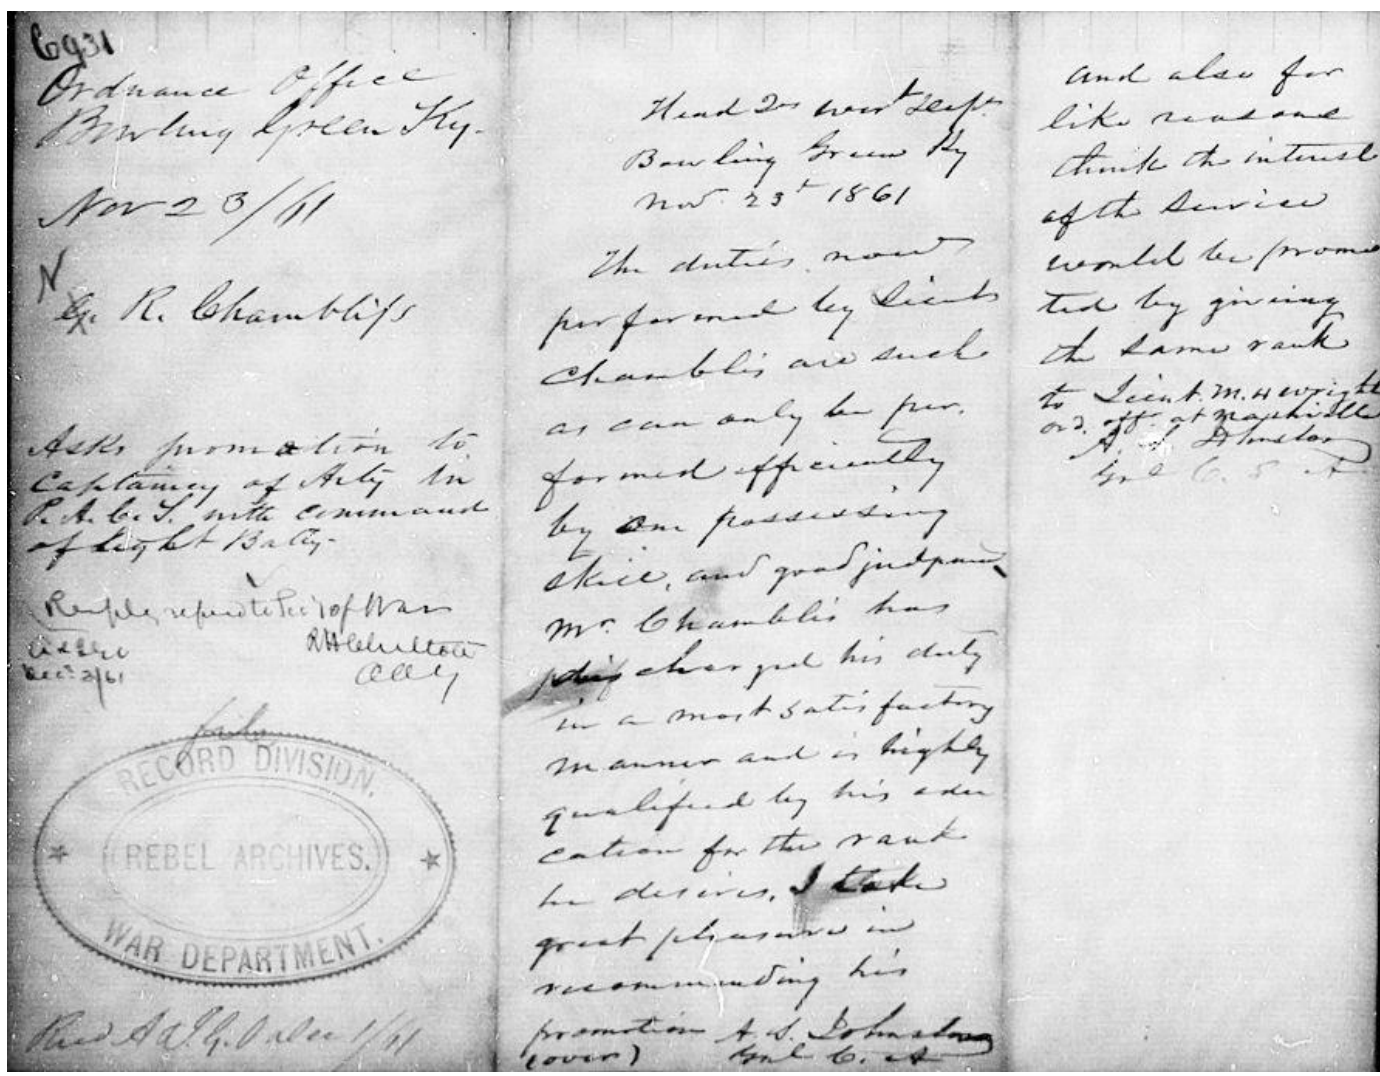 C931
Ordnance Office
Bowling Green Ky.
Nov 23/61
N
R. Chambliss
Asks promotion to
Captaincy of Arty in
P. A. C. S. with command
of light Batty.
Resply referred to Sec of War
RH Chilton
A&IGO
Dec 2/61
AAG
file
RECORD DIVISION.
REBEL ARCHIVES.
WAR DEPARTMENT.
Recd A & I. G. O Dec 1/61
Head Qrs West Dept
Bowling Green Ky
Nov. 23d 1861
The duties now
performed by Lieut
Chamblis are such
as can only be per.
formed efficiently
by one possessing
skill, and good judgment
Mr. Chamblis has
discharged his duty
in a most satisfactory
manner and is highly
qualified by his edu
cation for the rank
he desires. I take
great pleasure in
recommending his
promotion A. S. Johnston
(over) Genl C. A
and also for
like reasons
think the interest
of the service
would be promo
ted by giving
the same rank
to Lieut. M. H Wright
ord. offr. at Nashville
A. S Johnston
Genl C. S A